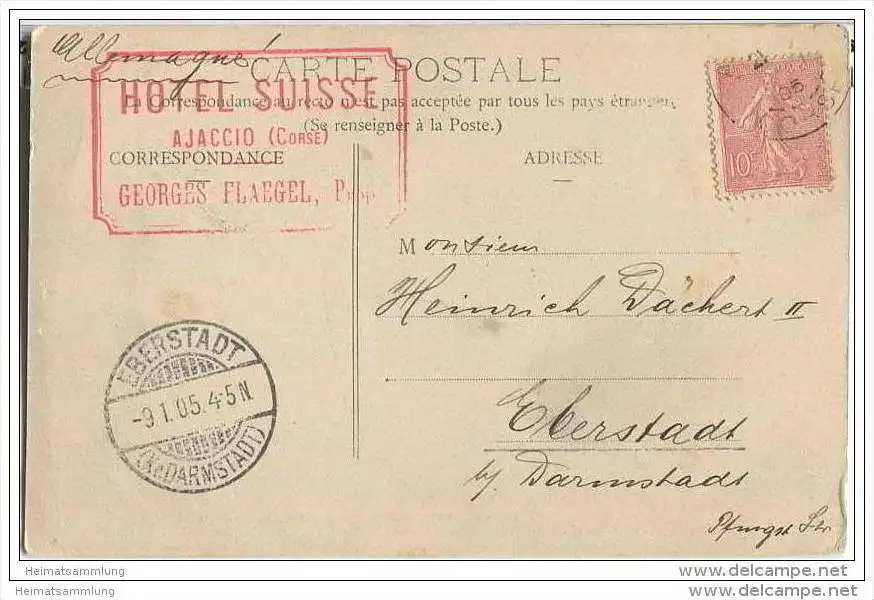 Allemagne!
CARTE POSTALE
La Correspondance au recto n'est pas acceptée par tous les pays étrangers
(Se renseigner à la Poste.)
HOTEL SUISSE
AJACCIO (CORSE)
GEORGES FLAEGEL, Prop
CORRESPONDANCE
ADRESSE
10
05
Monsieur
Heinrich Dächert II
Eberstadt
b/ Darmstadt
Pfungst Str
EBERSTADT
-9.1.05.4-5N.
(Kr. DARMSTADT)
Heimatsammlung
Heimatsammlung
www.delcampe.net
www.delcampe.net